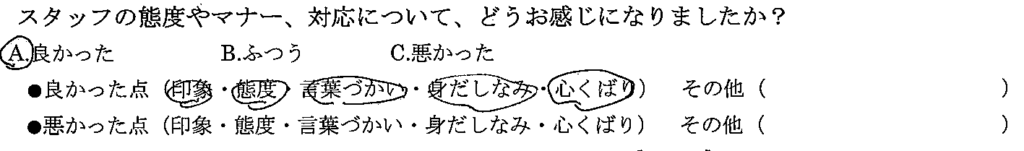 スタッフの態度やマナー、対応について、どうお感じになりましたか？
A.良かった B.ふつう C.悪かった
●良かった点（印象・態度・言葉づかい・身だしなみ・心くばり） その他（ ）
●悪かった点（印象・態度・言葉づかい・身だしなみ・心くばり） その他（ ）